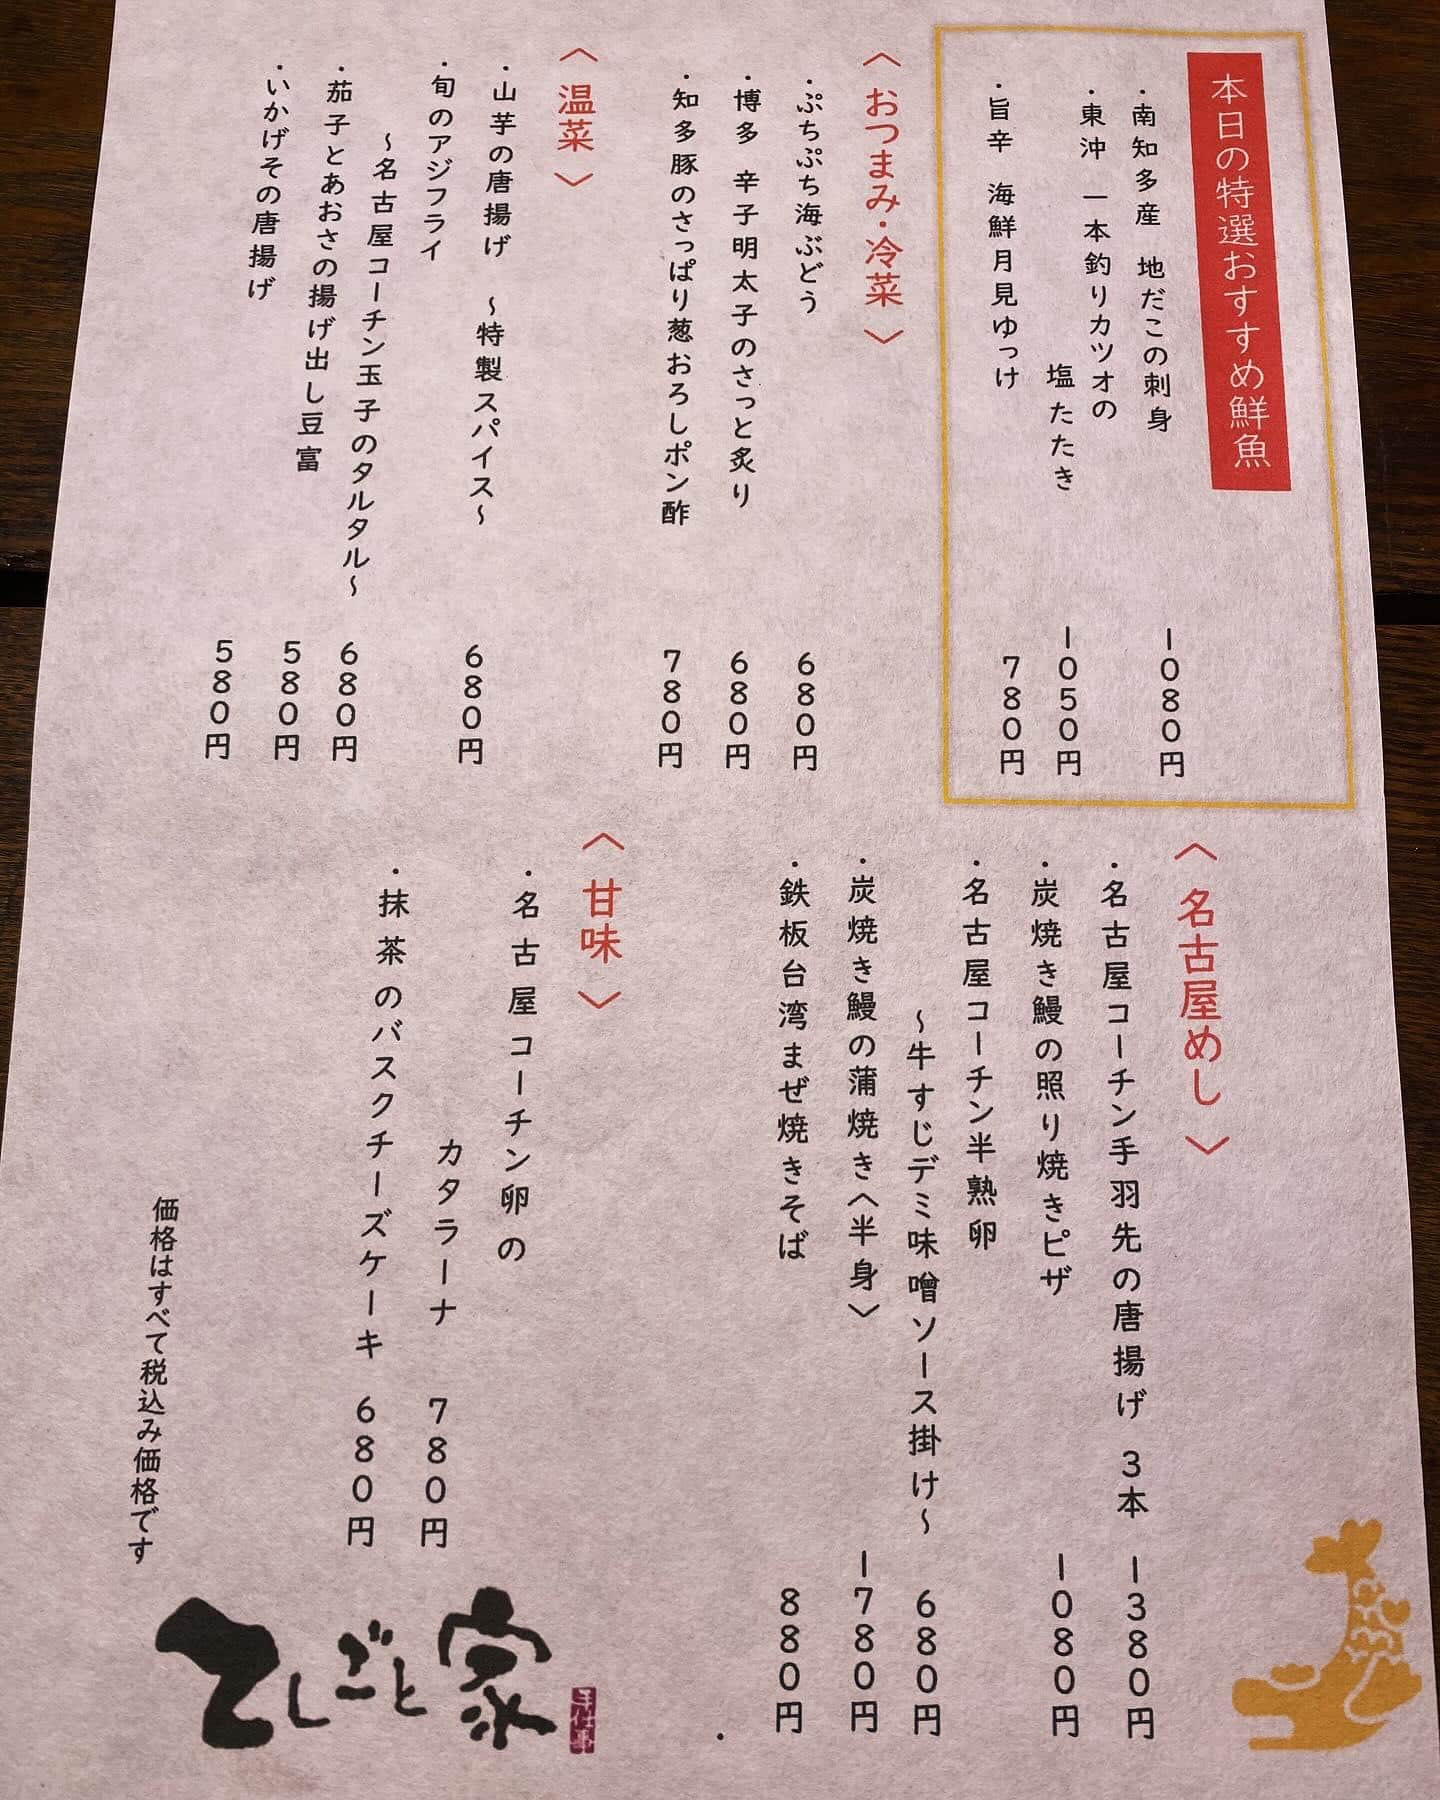 本日の特選おすすめ鮮魚
・南知多産 地だこの刺身 1080円
・東沖 一本釣りカツオの
塩たたき 1050円
・旨辛 海鮮月見ゆっけ 780円
〈おつまみ・冷菜〉
・ぷちぷち海ぶどう 680円
・博多 辛子明太子のさっと炙り 680円
・知多豚のさっぱり葱おろしポン酢 780円
〈温菜〉
・山芋の唐揚げ ～特製スパイス～ 680円
・旬のアジフライ
～名古屋コーチン玉子のタルタル～ 680円
・茄子とあおさの揚げ出し豆富 580円
・いかげその唐揚げ 580円
〈名古屋めし〉
・名古屋コーチン手羽先の唐揚げ 3本 1380円
・炭焼き鰻の照り焼きピザ 1080円
・名古屋コーチン半熟卵
～牛すじデミ味噌ソース掛け～ 680円
・炭焼き鰻の蒲焼き〈半身〉 1780円
・鉄板台湾まぜ焼きそば 880円
〈甘味〉
・名古屋コーチン卵の
カタラーナ 780円
・抹茶のバスクチーズケーキ 680円
価格はすべて税込み価格です
てしごと家
手仕事